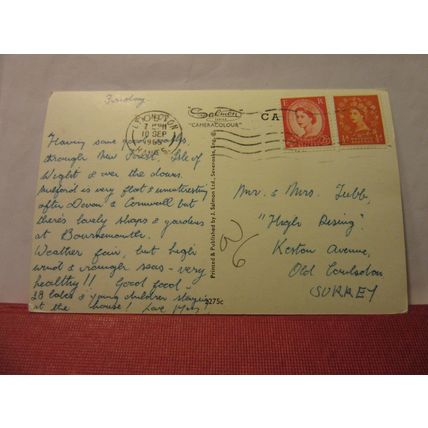 Friday
"Having some
through New Forest, Isle of
Wight & over the downs.
Milford is very flat & uninteresting
after Devon & Cornwall but
there's lovely shops & gardens
at Bournemouth.
Weather fair, but high
wind & rougher seas - very
healthy!! Good food -
28 babes & young children staying
at the house! Love
LYMINGTON
10 SEP
HANTS
Salmon
"CAMERACOLOUR"
Printed & Published by J. Salmon Ltd., Sevenoaks, Eng.
2275c
CA
E R
Mr. & Mrs. Tubb,
"High Rising",
Keston Avenue,
Old Coulsdon
SURREY